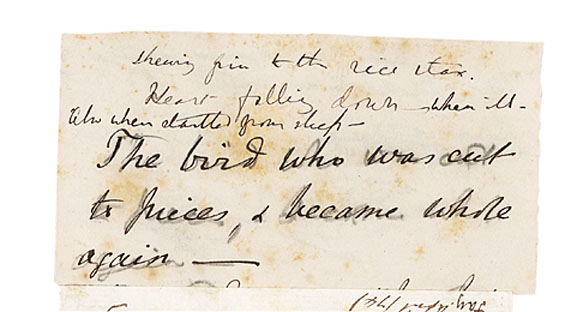 to the rice
Heart falling down when ill -
Also when startled from sleep -
The bird who was cut
to pieces, & became whole
again —